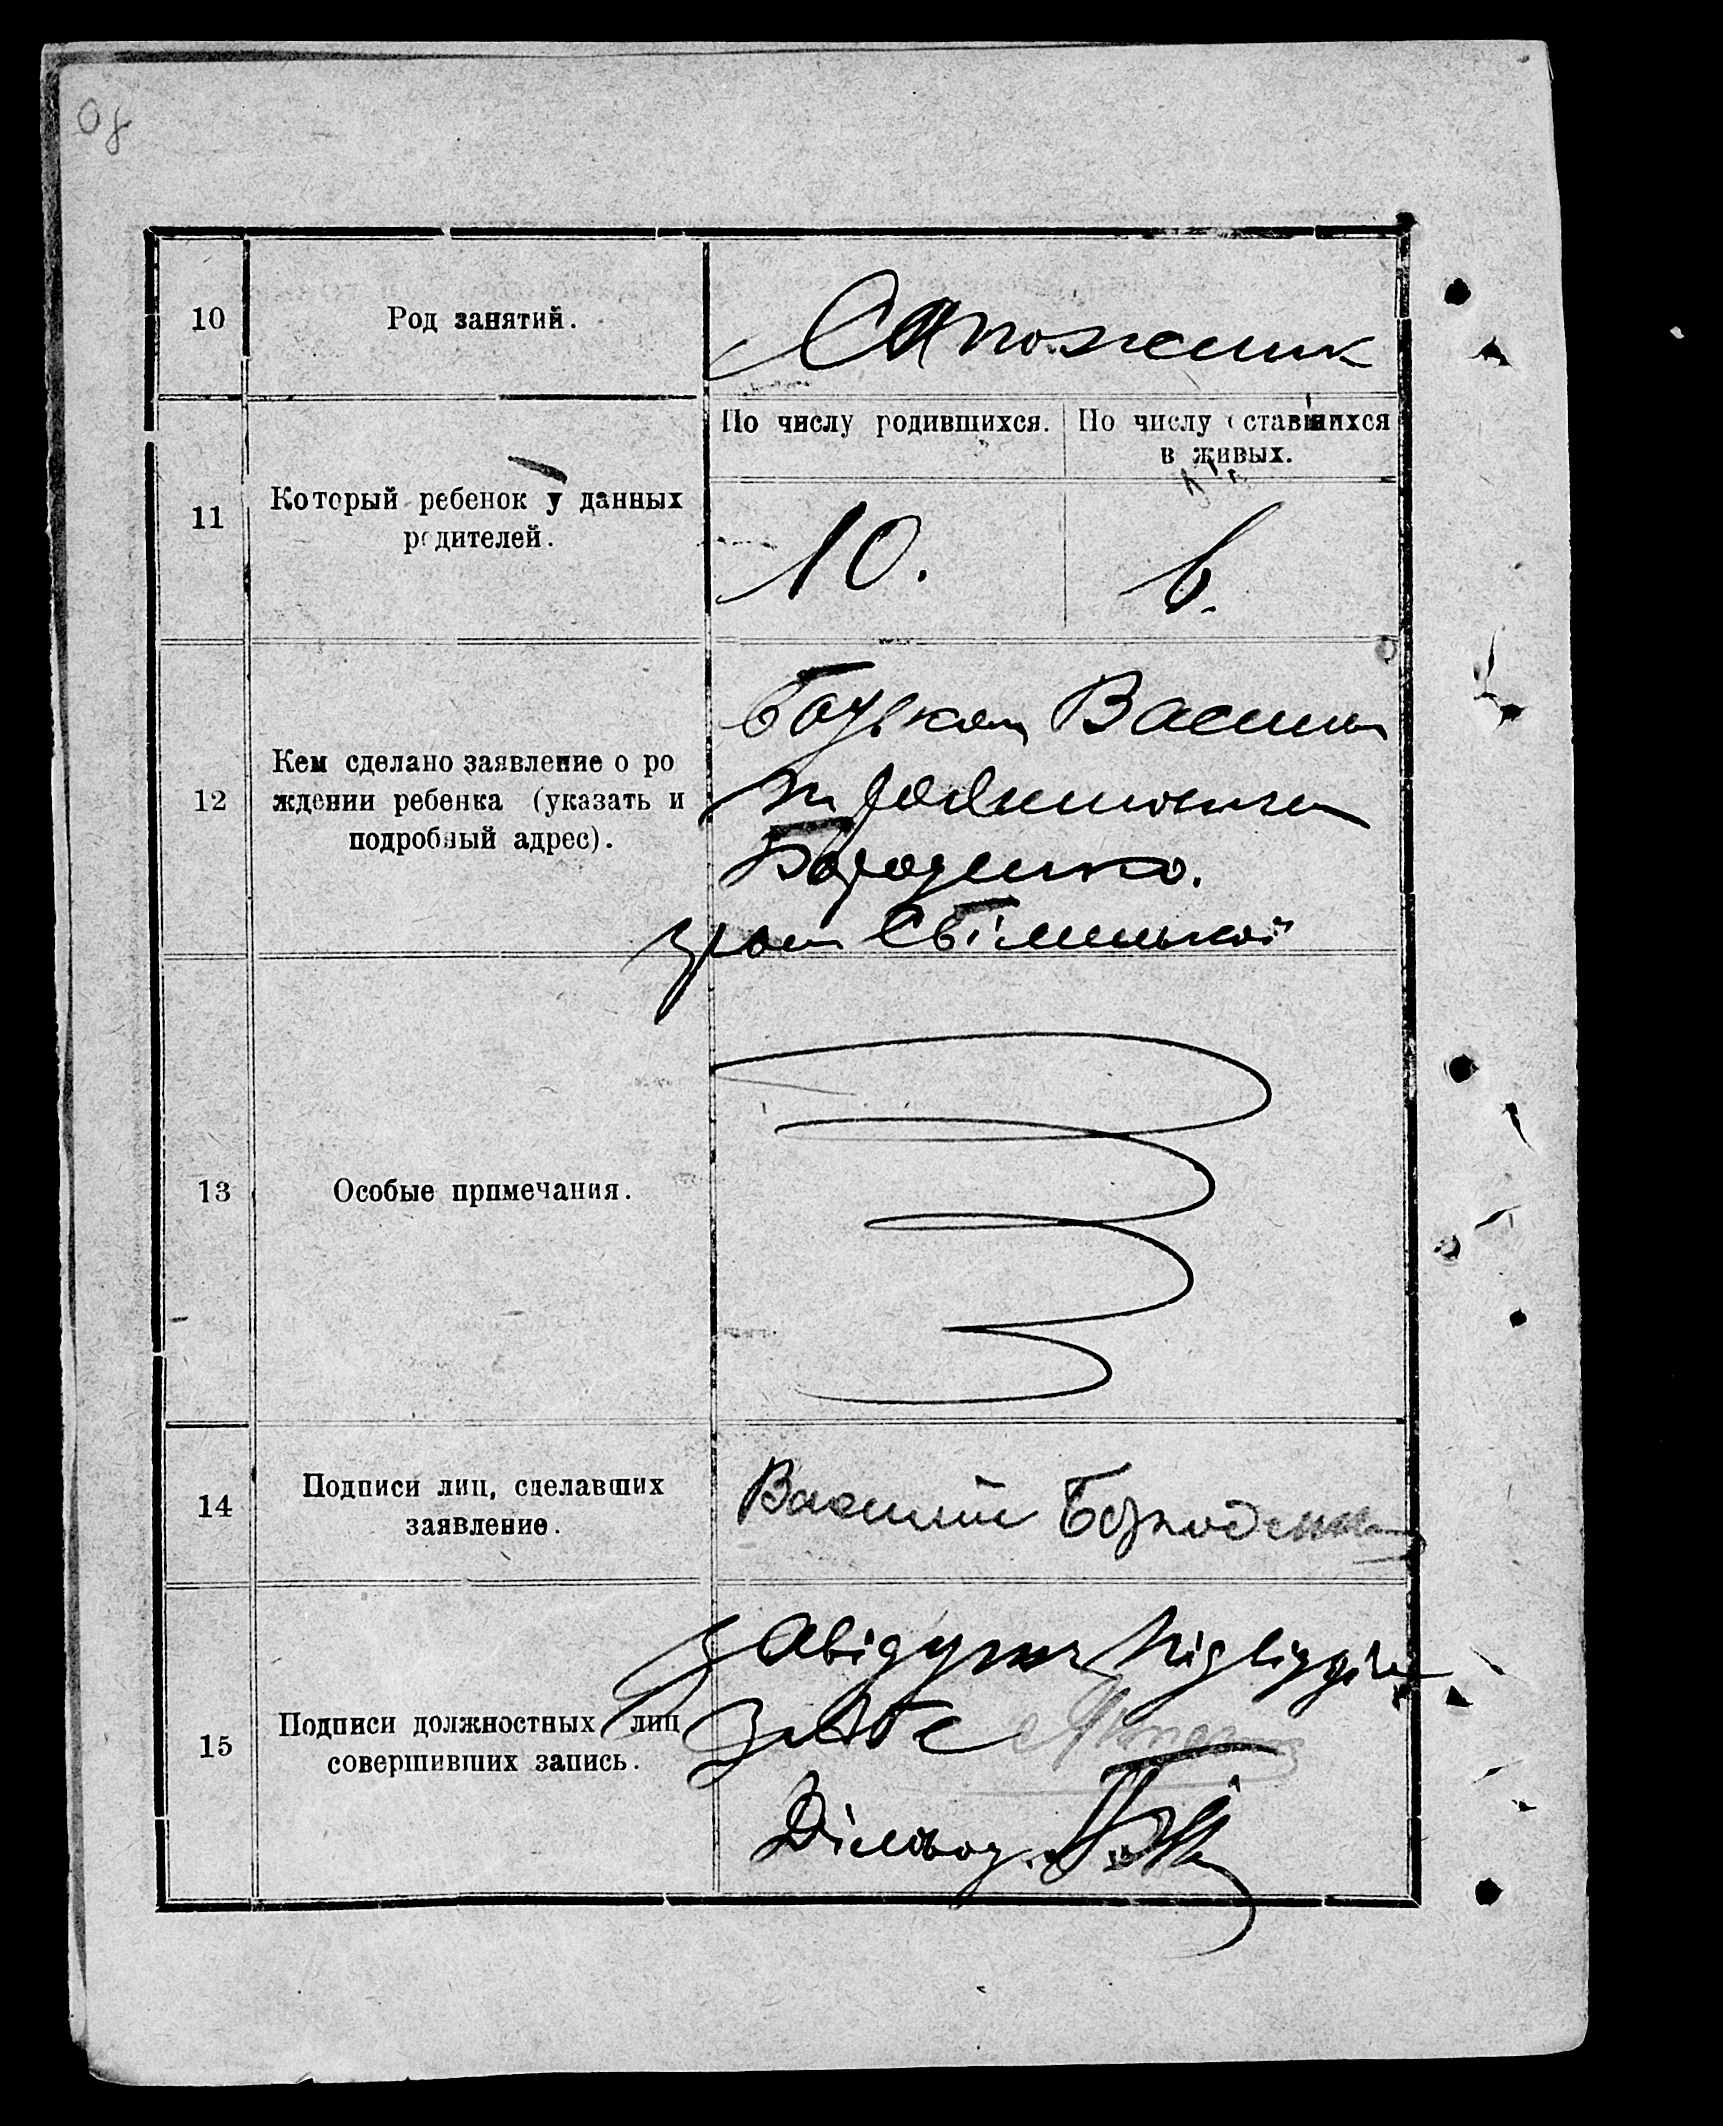 10
Род занятий.
Сапожник
11
Который ребенок у данных
родителей.
По числу родившихся.
По числу оставшихся
в живых.
10.
6.
12
Кем сделано заявление о ро
ждении ребенка (указать и
подробный адрес).
батьком Василем
Бороденко.
13
Особые примечания.
14
Подписи лиц, сделавших
заявление.
Василий Бороденко
15
Подписи должностных лиц
совершивших запись.
Завідуючий підвідділу
ЗАГС
Діловод